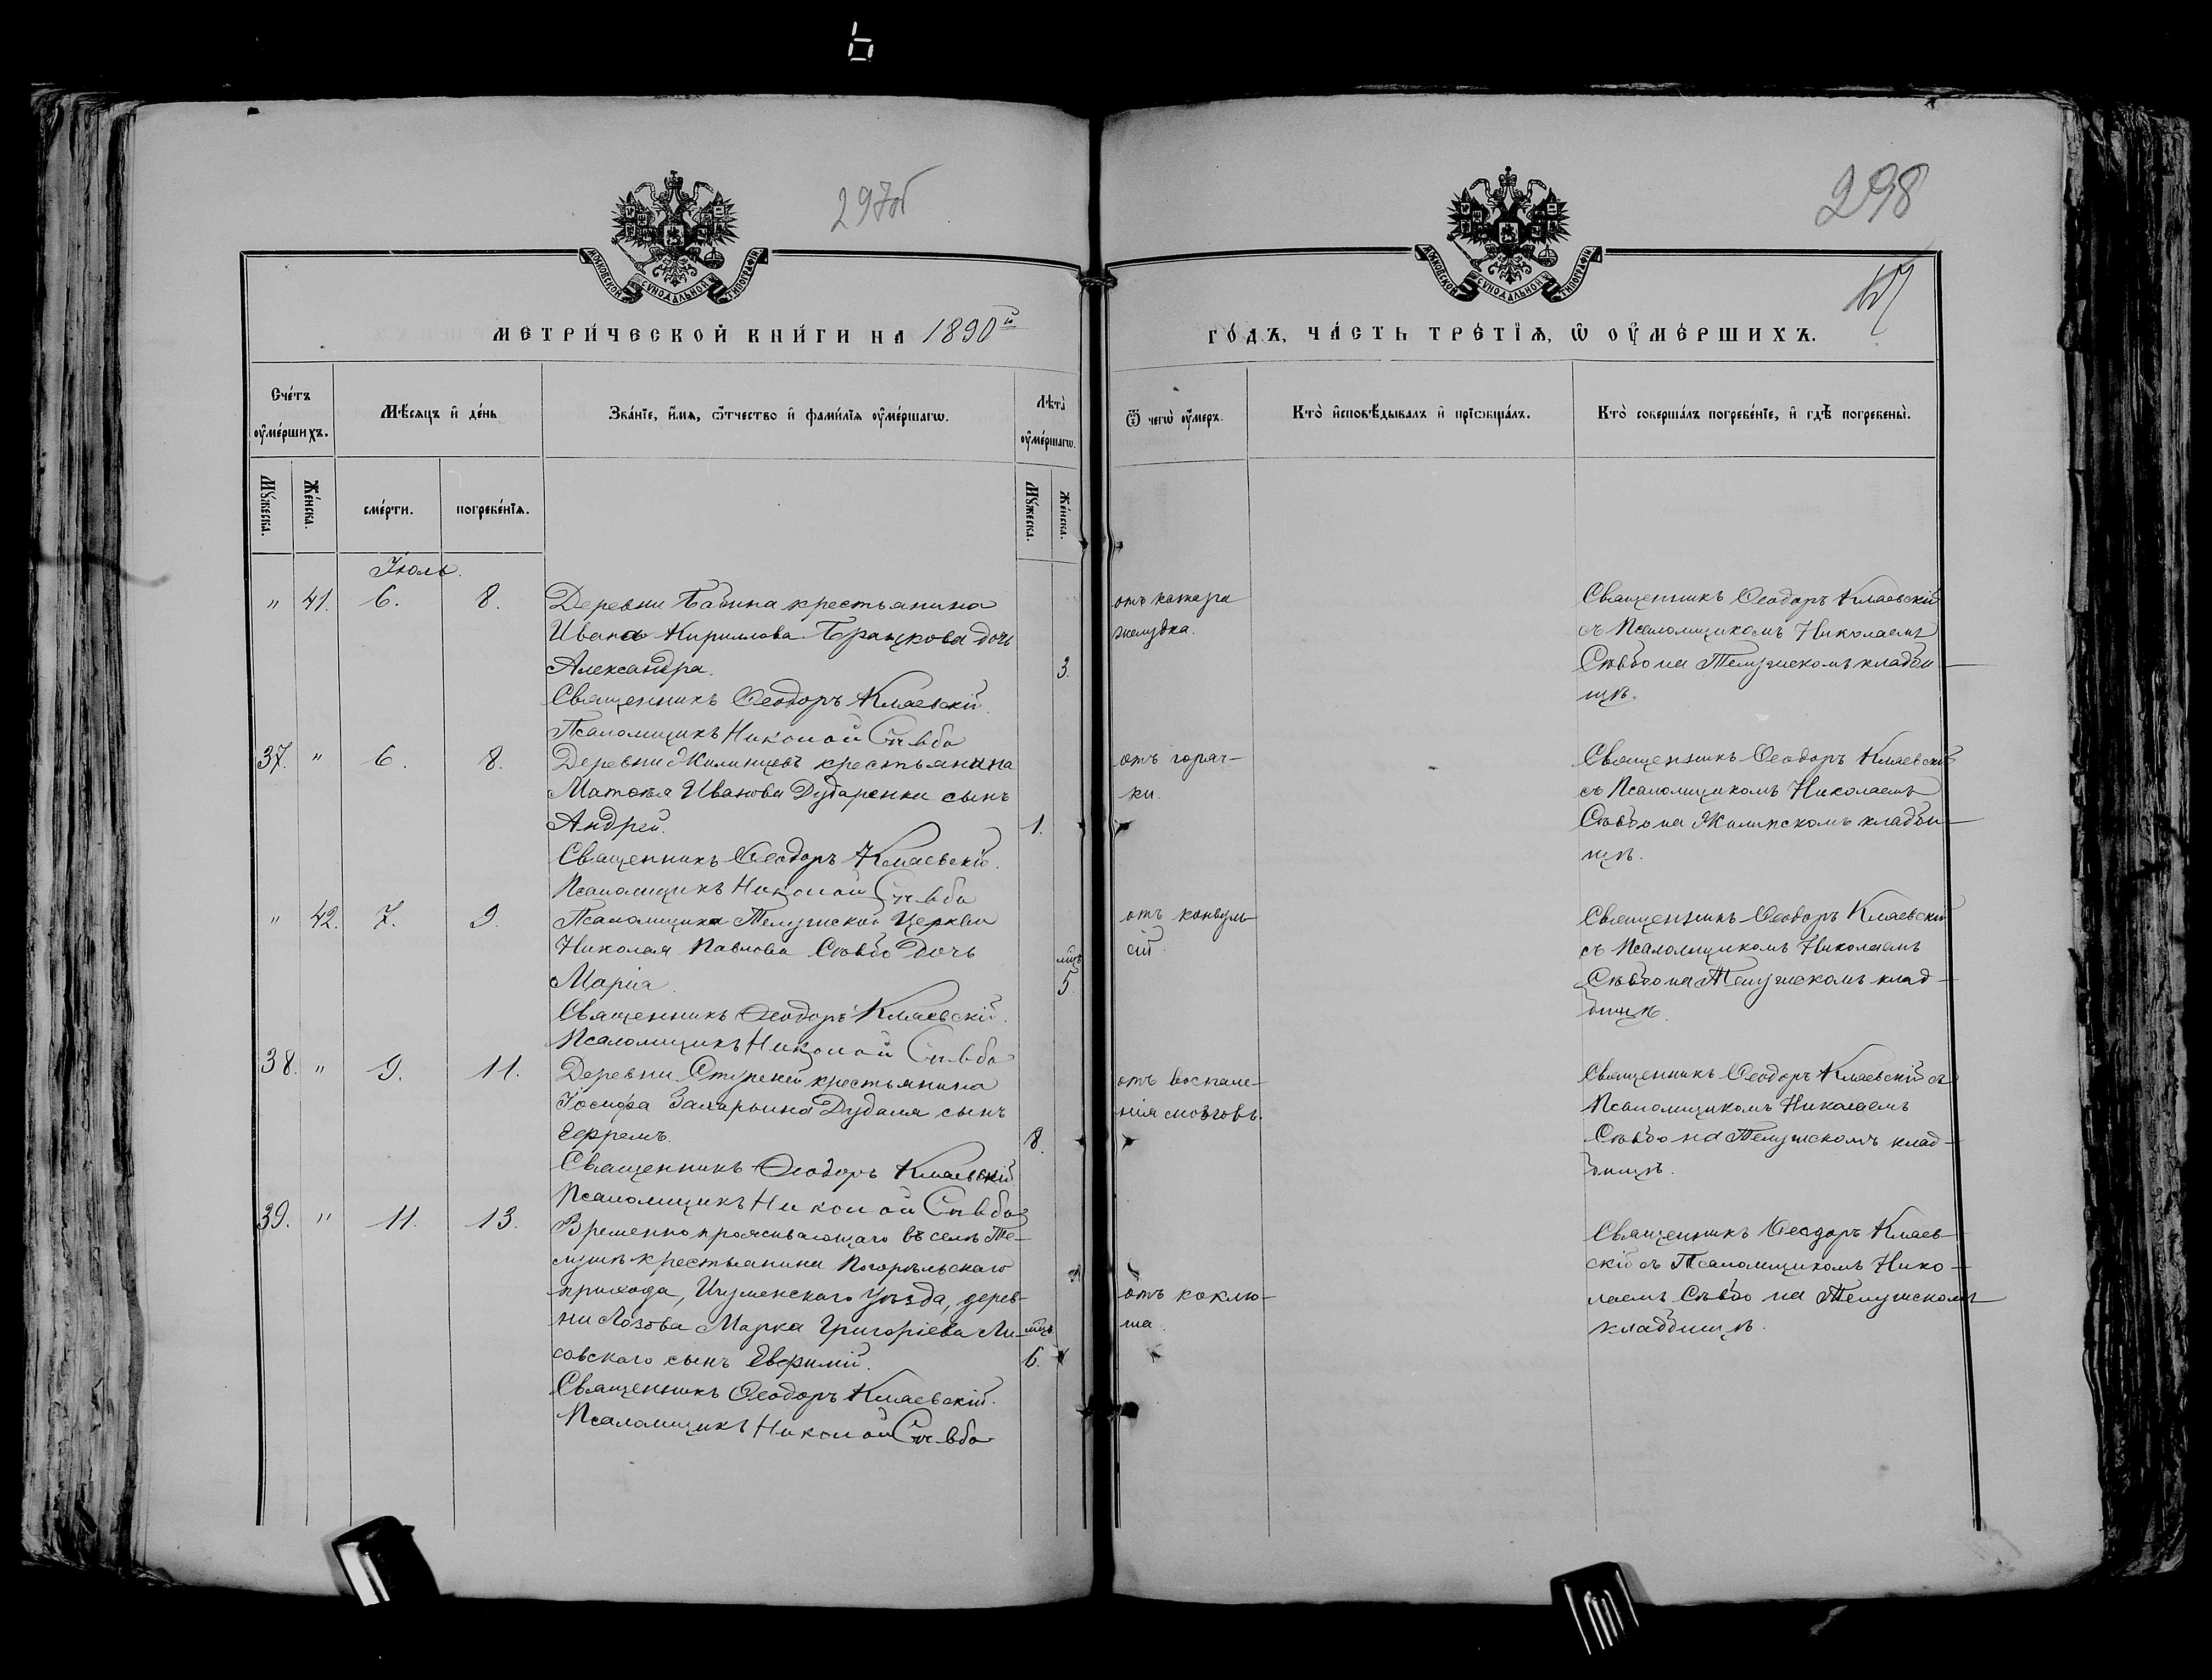 297об
298
МОСКОВСКОЙ СѴНОДАЛЬНОЙ ТИПОГРАФІИ
МОСКОВСКОЙ СѴНОДАЛЬНОЙ ТИПОГРАФІИ
МЕТРИ́ЧЕСКОЙ КНИ́ГИ НА 1890й
ГО́ДЪ, ЧА́СТЬ ТРЕ́ТІѦ, Ѡ҆ ОУ҆МЕ́РШИХЪ.
Сче́тъ оу҆ме́ршихъ.
Мѣ́сяцъ и҆ де́нь
Зва́нїе, и҆́мя, ѻ҆́тчество и҆ фами́лїя оу҆ме́ршагѡ.
Лѣта̀ оу҆ме́ршагѡ.
Ѿ чегѡ̀ оу҆́меръ.
Кто̀ и҆сповѣ́дывалъ и҆ прїѡбща́лъ.
Кто̀ соверша́лъ погребе́нїе, и҆ гдѣ̀ погребены̀.
Мꙋ́жеска.
Же́нска.
сме́рти.
погребе́нїя.
Мꙋ́жеска.
Же́нска.
Іюль.
" 41. 6. 8.
Деревни Бабина крестьянина
Ивана Кириллова Бранкова дочь
Александра. 3.
Священникъ Ѳеодоръ Клаевскій.
Псаломщикъ Николай Сѣвбо
отъ катара
желудка.
Священникъ Ѳеодоръ Клаевскій
съ Псаломщикомъ Николаемъ
Сѣвбо на Телушскомъ кладби-
щѣ.
37. " 6. 8.
Деревни Жилинцевъ крестьянина
Матѳея Иванова Дударенки сынъ
Андрей. 1.
Священникъ Ѳеодоръ Клаевскій.
Псаломщикъ Николай Сѣвбо
отъ горяч-
ки.
Священникъ Ѳеодоръ Клаевскій
съ Псаломщикомъ Николаемъ
Сѣвбо на Жилинскомъ кладби-
щѣ.
" 42. 7. 9.
Псаломщика Телушской Церкви
Николая Павлова Сѣвбо дочь
Марія. мцъ 5
Священникъ Ѳеодоръ Клаевскій.
Псаломщикъ Николай Сѣвбо
отъ конвуль-
сій
Священникъ Ѳеодоръ Клаевскій
съ Псаломщикомъ Николаемъ
Сѣвбо на Телушскомъ клад-
бищѣ.
38. " 9. 11.
Деревни Ступеней крестьянина
Іосифа Захарьина Дудаля сынъ
Ефремъ. 8.
Священникъ Ѳеодоръ Клаевскій.
Псаломщикъ Николай Сѣвбо
отъ воспале-
нія мозговъ.
Священникъ Ѳеодоръ Клаевскій съ
Псаломщикомъ Николаемъ
Сѣвбо на Телушскомъ клад-
бищѣ.
39. " 11. 13.
Временно проживающаго въ селѣ Те-
лушѣ крестьянина Погорѣльскаго
прихода, Игуменскаго Уѣзда, дерев-
ни Лозова Марка Григоріева Ли-
совскаго сынъ Евфимій. мцъ 6.
Священникъ Ѳеодоръ Клаевскій.
Псаломщикъ Николай Сѣвбо
отъ коклю-
ша.
Священникъ Ѳеодоръ Клаев-
скій съ Псаломщикомъ Нико-
лаемъ Сѣвбо на Телушскомъ
кладбищѣ.